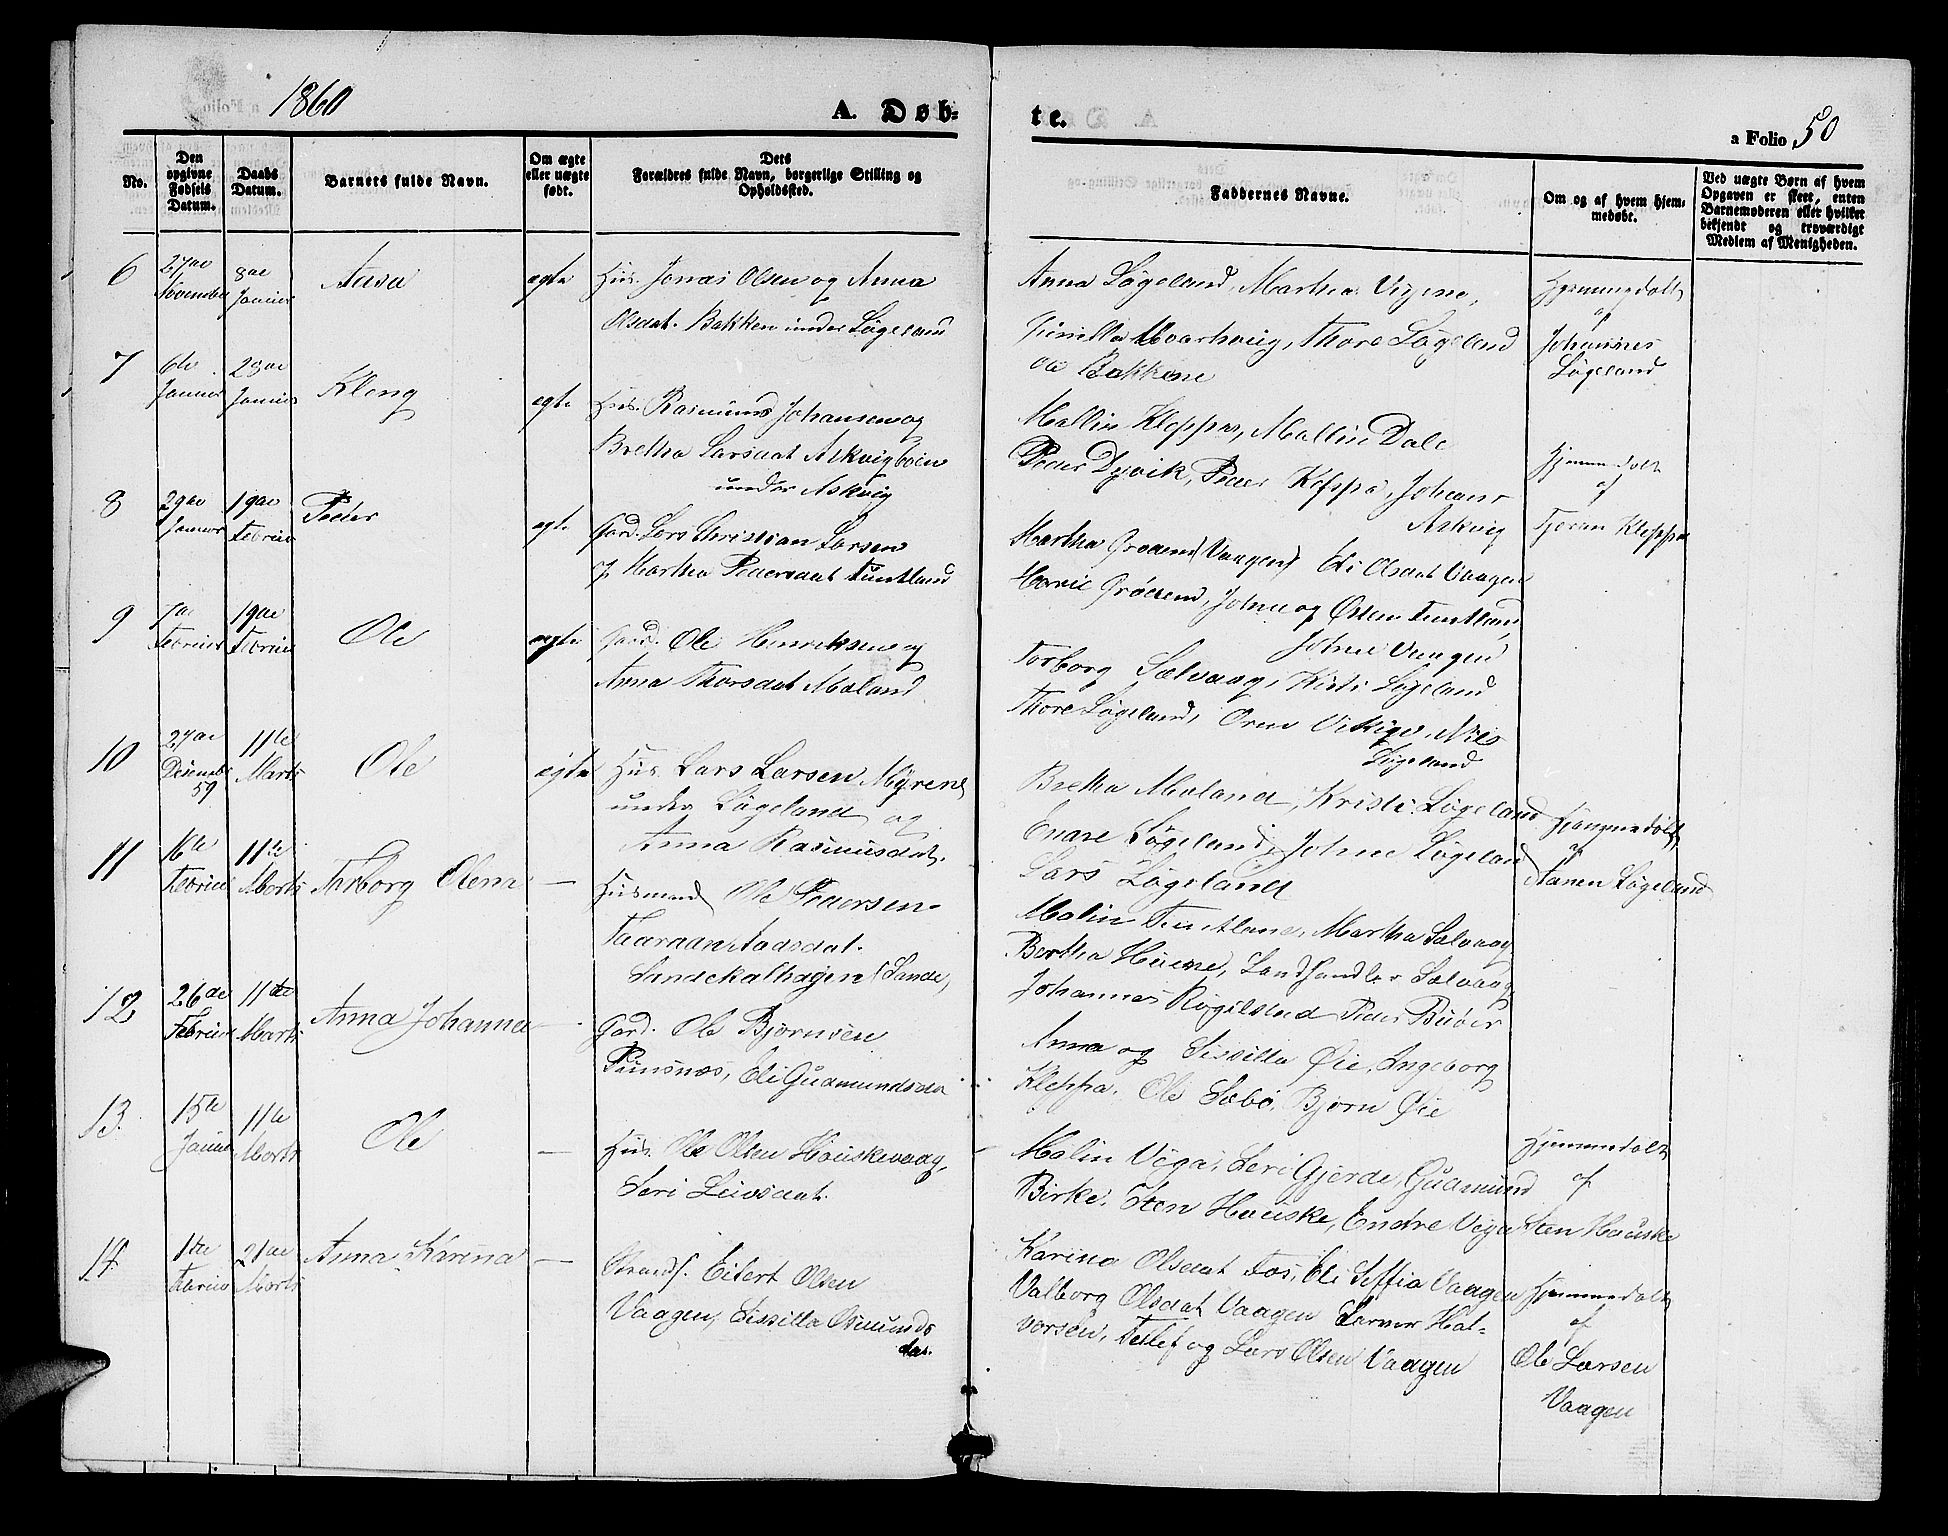 1860
A. Døb-
te.
a Folio 50
No.
Den opgivne Fødsels Datum.
Daabs Datum.
Barnets fulde Navn.
Om ægte eller uægte født.
Dets Forældres fulde Navn, borgerlige Stilling og Opholdssted.
Faddernes Navne.
Om og af hvem hjemmedøbt.
Ved uægte Børn af hvem Opgaven er skeet, enten Barnemoderen eller hvilket bekjendt og troværdigt Medlem af Menigheden.
6
27de November
8de Januar
Aasa
egte
Hus. Jonas Olsen og Anna
Olsdat. Bakken under Løgeland
Anna Løgeland, Martha
Thore Løgeland
Bakkene
Hjemmedøbt
af
Johannes
Løgeland
7
6te Januar
Januar
Kleng
egte
Hus. Rasmus Johansen og
Bretha Larsdat Askvigbøen
under Askvig
Mallin Kleppa, Mallin Dale
Peder Dyvik, Peder Kleppa, Johans
Askvig
Hjemmedøbt
af
Kleppa
8
29de Januar
19de Febriar
Peder
egte
Gard. Lars Christian Larsen
og Martha Pedersdat Tuntland
Martha (Vaagen) Eli Olsdat Vaagen
Johne og Østen Tuntland
Johne Vaagen
9
7de Febriar
19de Febriar
Ole
egte
Gard. Ole Henriksen og
Anna Thorsdat Maland
Torborg Sælvaag, Kisti Løgeland
Thore Løgeland, Nils
Løgeland
10
27de Desember 59
11te Marts
Ole
egte
Hus. Lars Larsen Myrene
under Løgeland og
Anna Rasmusdat.
Bretha Maland, Kristi Løgeland
Enare Løgeland, Johne Løgeland
Lars Løgeland
Hjemmedøbt
af
Aanen Løgeland
11
16de Febriar
11te Marts
Tarborg Elena
—
Husmand Ole Pedersen
Sandekalhagen (Sande)
Malin Tuntland, Martha Sælvaag
Bertha Landhandler Sælvaag
Johannes Peder
12
26de Febriar
11te Marts
Anna Johanna
—
Gard. Ole Bjørnsen
Punsnæs, Eli Gudmundsda
Anna og Sissilla Øie, Ingeborg
Kleppa. Ole Sæbø, Bjørn Øie
13
15de Januar
11te Marts
Ole
—
Hus. Ole Olsen Houskevaag,
Seri Leivsdat.
Malin Vega, Seri Gjerde, Gudmund
Birke, Sten Houske, Endre Vega
Hjemmedøbt
af
Sten Houske
14
Febriar
21de Marts
Anna Karina
—
Strands. Eilert Olsen
Vaagen, Sissilla Osmunds
dat.
Karina Olsdat Fos, Eli Seffia Vaagen
Valborg Olsdat Vaagen Hal-
vorsen, Tellef og Lars Olsen Vaagen
Hjemmedøbt
af
Ole Larsen
Vaagen